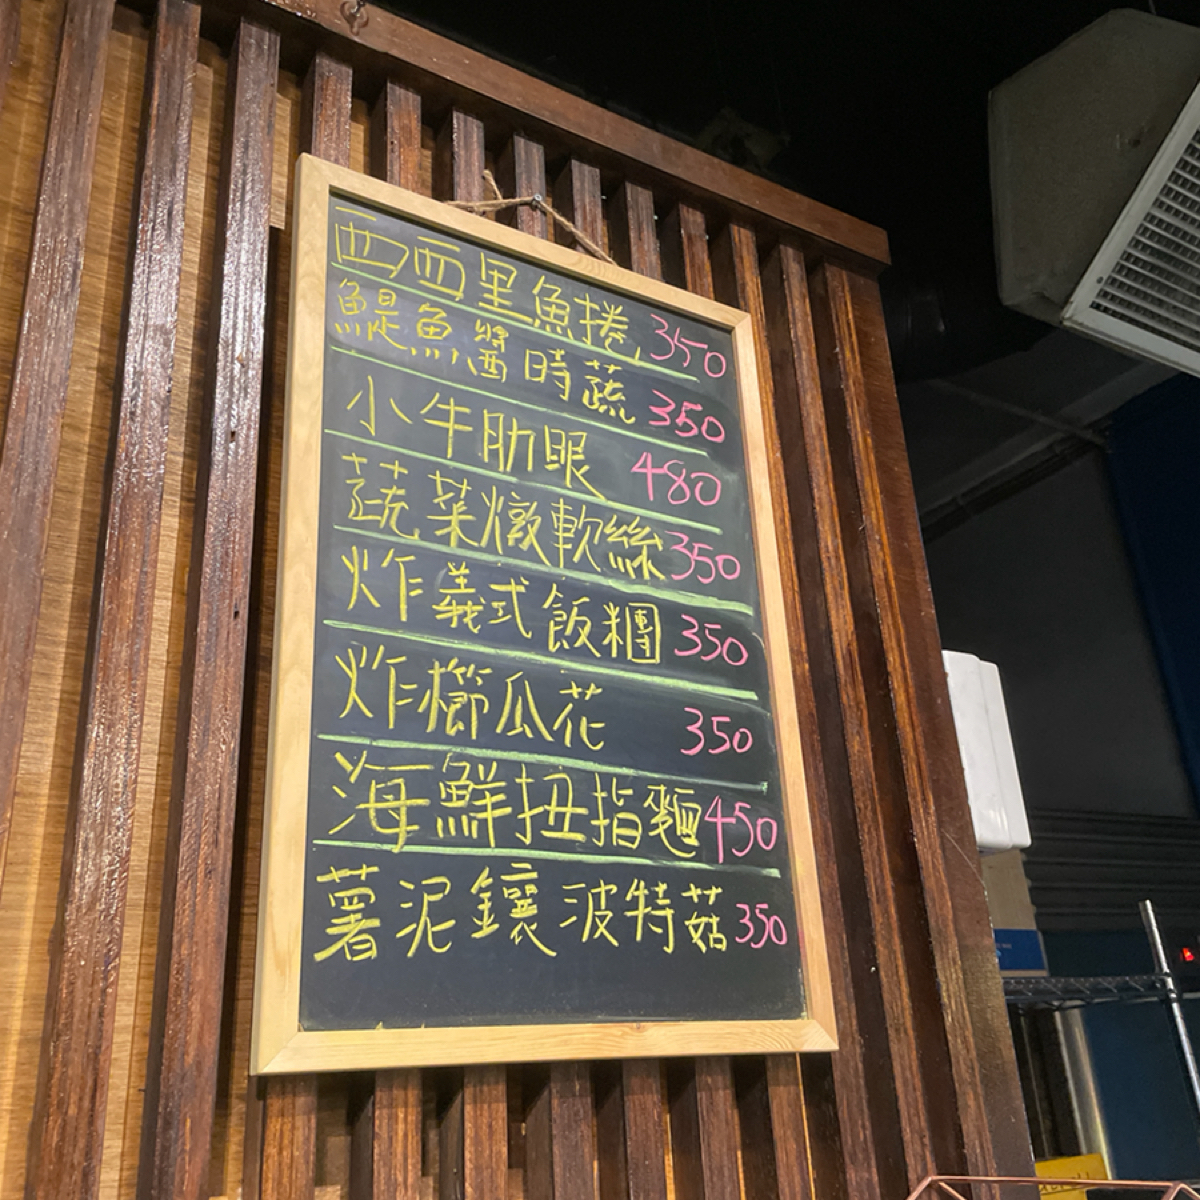 西西里魚捲 350
鯷魚醬時蔬 350
小牛肋眼 480
蔬菜燉軟絲 350
炸義式飯糰 350
炸櫛瓜花 350
海鮮扭指麵 450
薯泥鑲波特菇 350